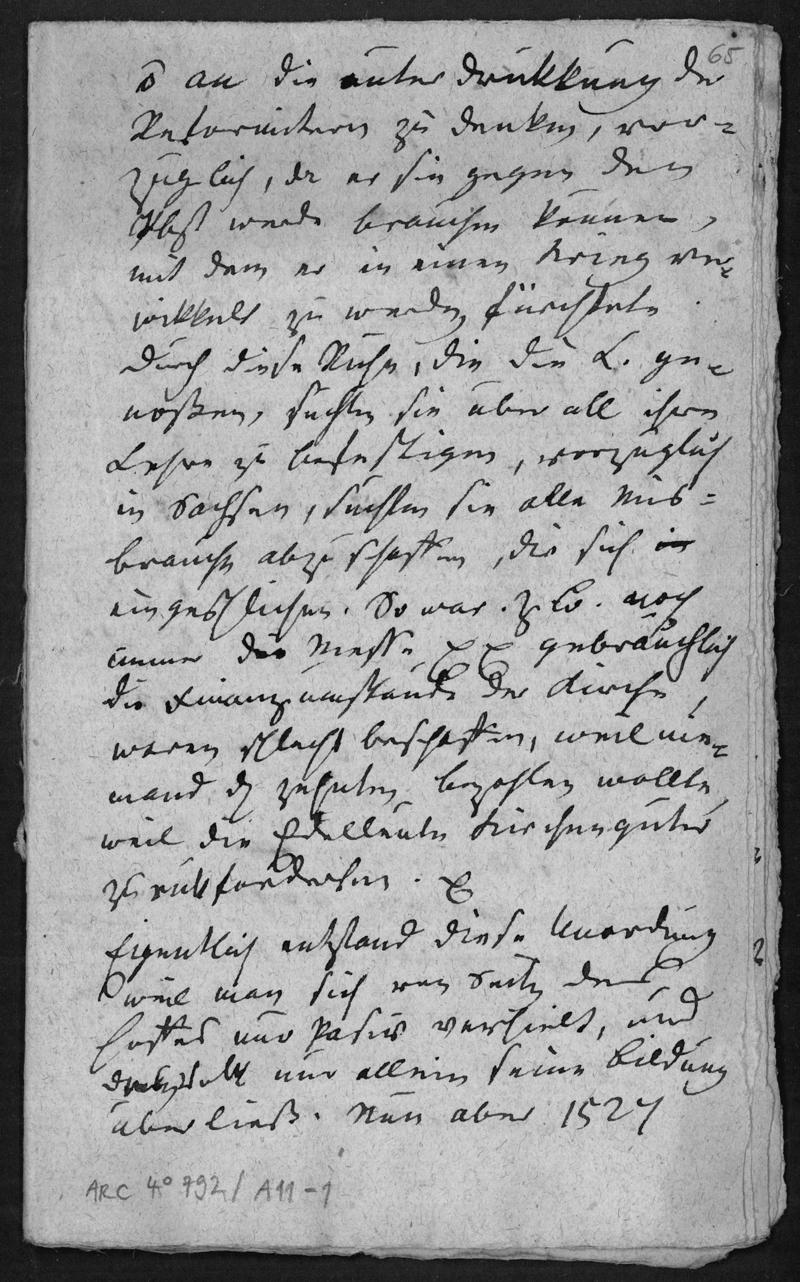 65
õ an die unterdrükkung de
Reformitern zu denken, vor=
züglich, da er sie gegen den
Pbst werde brauchen können,
mit dem er in einen Krieg ver=
wikkelt zu werden fürchtete.
Durch diese Ruhe, die die L. ge=
noßen, suchten sie über all ihre
Lehre zu befestigen, vorzüglich
in Sachsen, suchten sie alle Mis=
bräuche abzuschaffen, die sich
eingeschlichen. So war z. B. noch
immer die Messe gebräuchlich
die Finanzumstände der Kirche,
waren schlecht beschaffen, weil nie=
mand dz zehnten bezahlen wollte,
weil die Edelleute Kirchengüter
zurükforderten.
Eigentlich entstand diese Unordung
weil man sich von Seiten des
Hoffes nur pasiv verhielt, und
nur allein seine Bildung
überließ. Nun aber 1527
ARC 4° 792/ A11-1